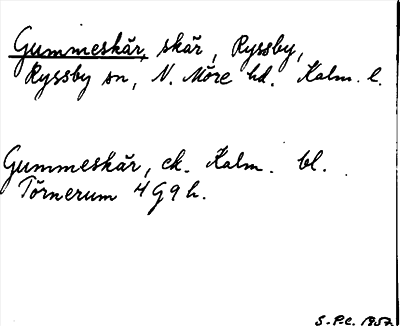 Gummeskär, skär, Ryssby,
Ryssby sn, N. Möre hd. Kalm. l.
Gummeskär, ek. Kalm. bl.
Törnerum 4 G 9 h.
S.P.C. 1957